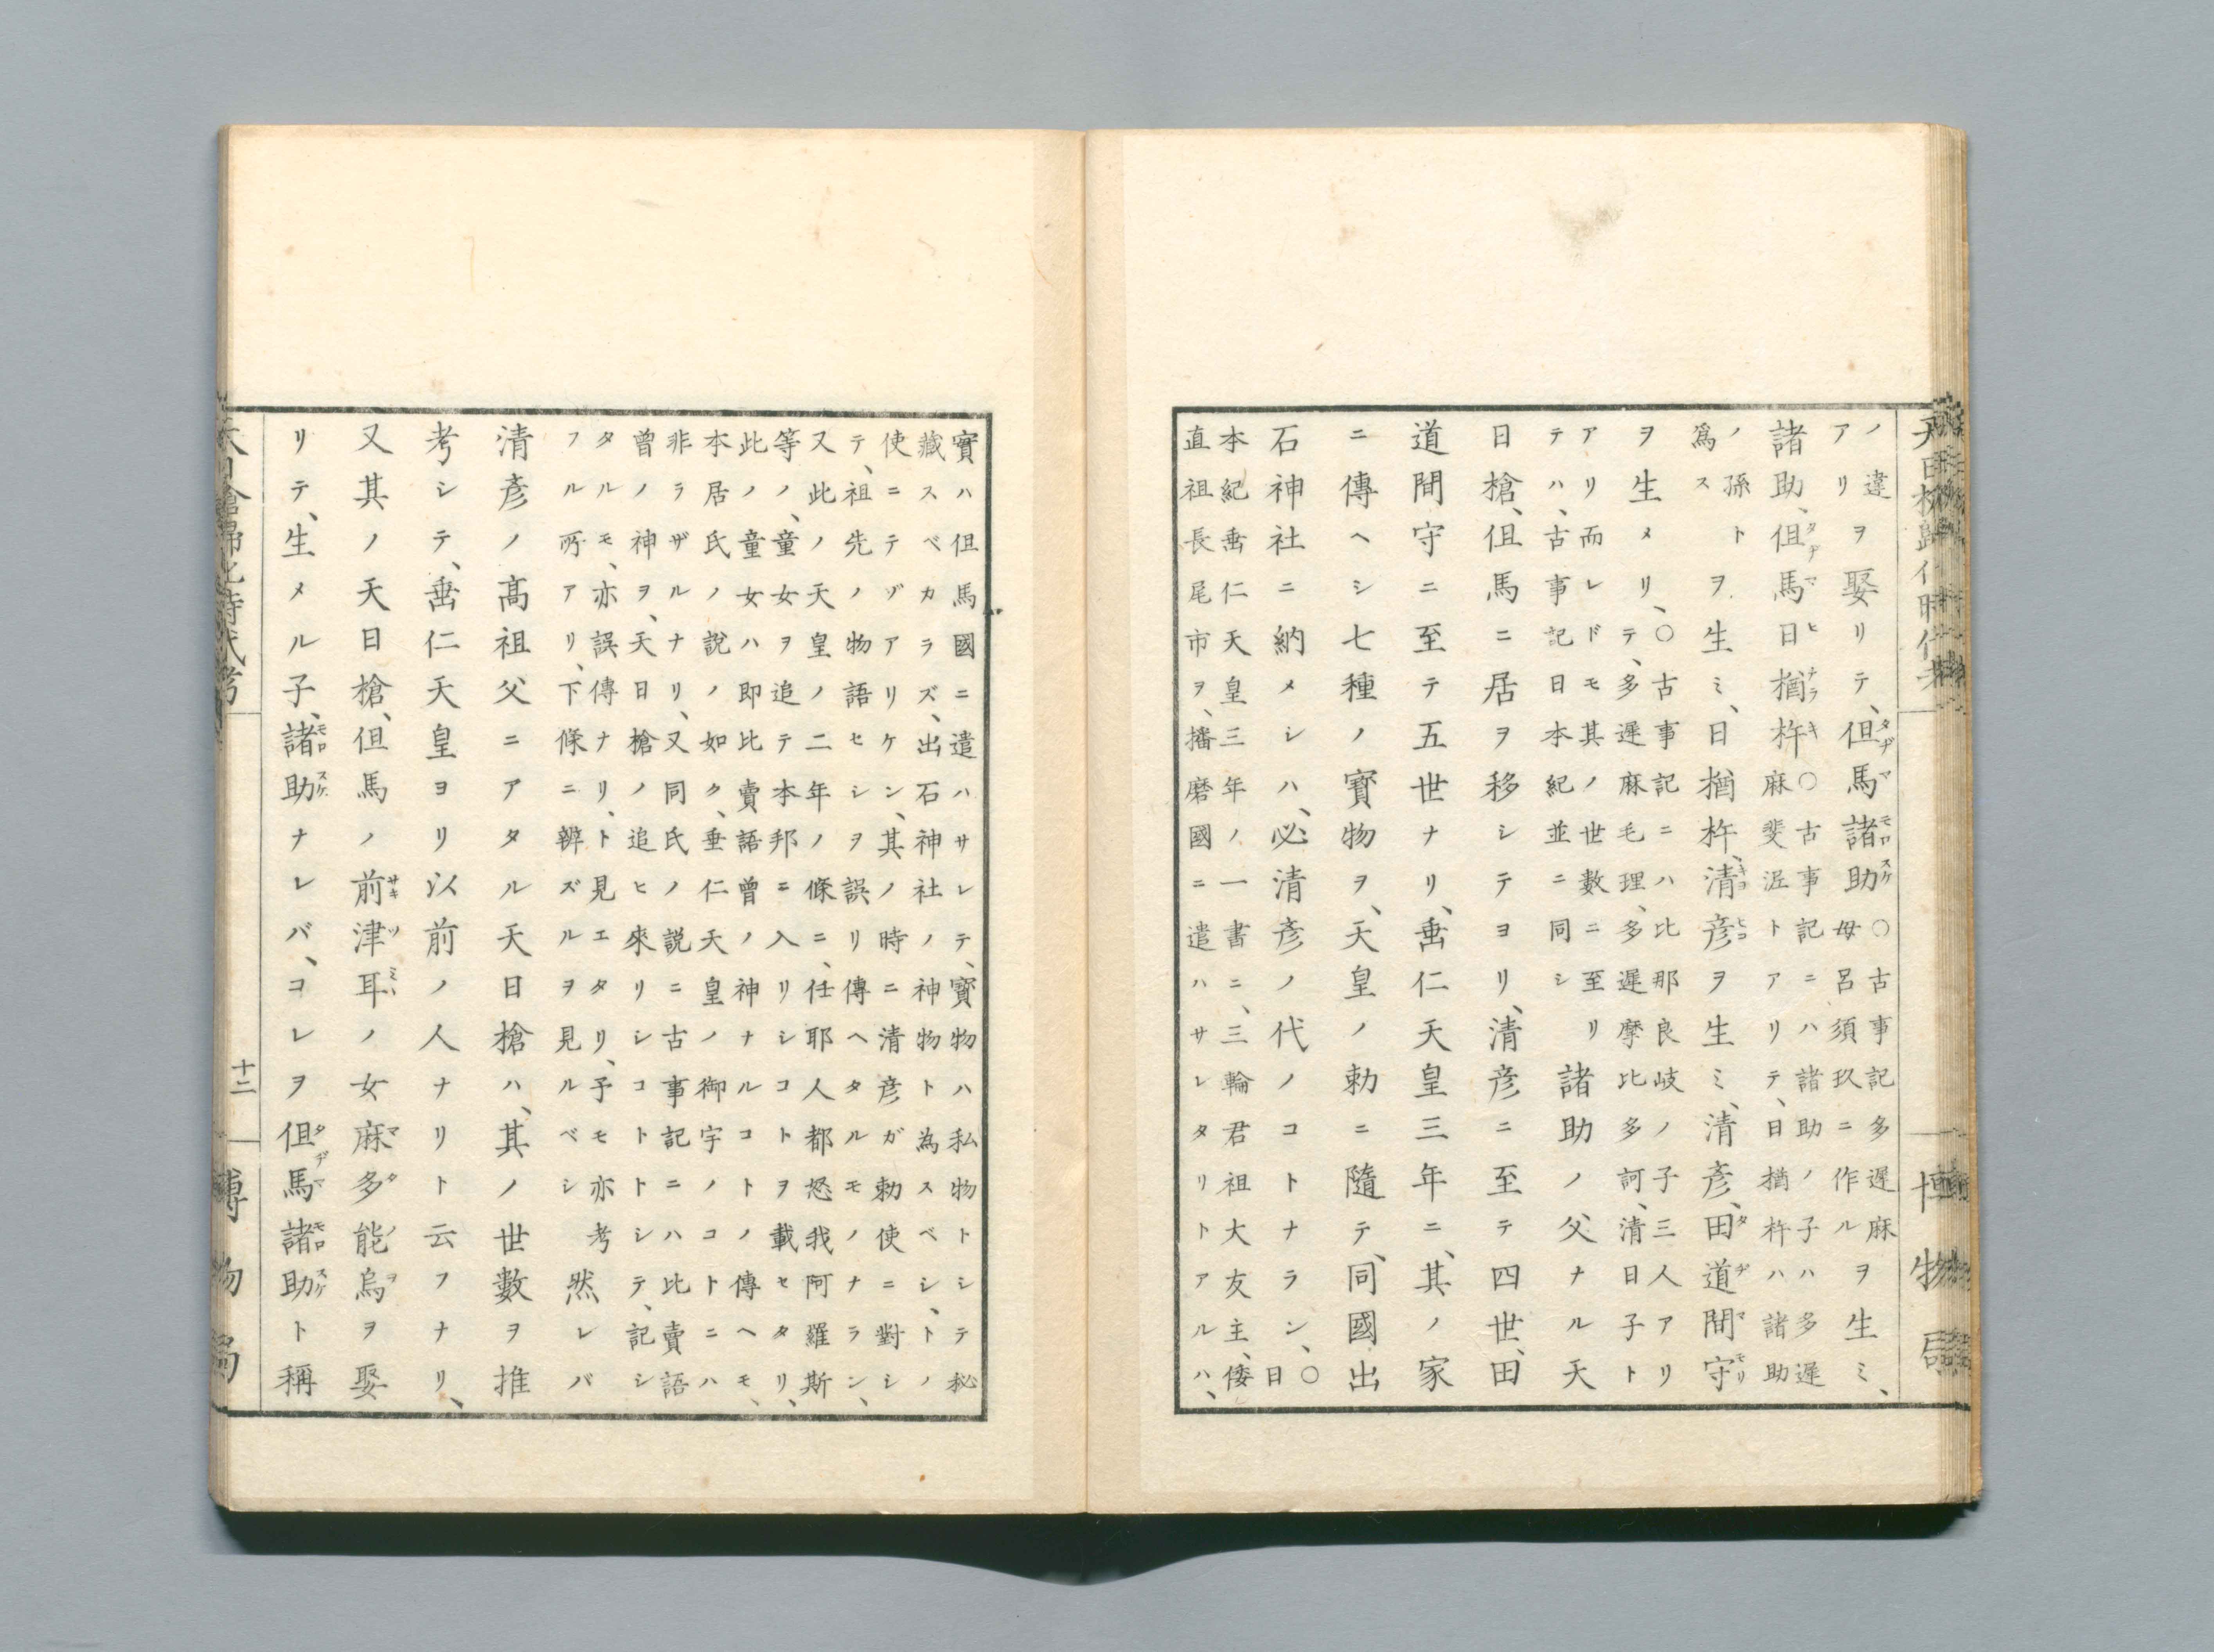 ノ違
アリ
ヲ娶リテ、但馬諸助
○古事記多遲麻
母呂須玖ニ作ル
ヲ生ミ、
諸助、但馬日楢杵
○古事記ニハ諸助ノ子ハ多遲
麻斐泥トアリテ、日楢杵ハ諸助
ノ孫ト
爲ス
ヲ生ミ、日楢杵、清彦ヲ生ミ、清彦、田道間守
ヲ生メリ、
○古事記ニハ比那良岐ノ子三人アリ
テ、多遲麻毛理、多遲摩比多訶、清日子ト
アリ而レドモ其ノ世數ニ至リ
テハ、古事記日本紀並ニ同シ
諸助ノ父ナル天
日槍、但馬ニ居ヲ移シテヨリ、清彦ニ至テ四世、田
道間守ニ至テ五世ナリ、垂仁天皇三年ニ、其ノ家
ニ傳ヘシ七種ノ寳物ヲ、天皇ノ勅ニ隨テ、同國出
石神社ニ納メシハ、必清彦ノ代ノコトナラン、
○
日
本紀垂仁天皇三年ノ一書ニ、三輪君祖大友主、倭
直祖長尾市ヲ、播磨國ニ遣ハサレタリトアルハ、
寳ハ但馬國ニ遣ハサレテ、寳物ハ私物トシテ秘
藏スベカラズ、出石神社ノ神物ト為スベシ、トノ
使ニテゾアリケン、其ノ時ニ清彦ガ勅使ニ對シ
テ、祖先ノ物語セシヲ誤リ傳ヘタルモノナラン、
又此ノ天皇ノ二年ノ條ニ、任耶人都怒我阿羅斯
等ノ、童女ヲ追テ本邦ニ入リシコトヲ載セタリ、
此ノ童女ハ即比賣語曾ノ神ナルコトノ傳ヘモ、
本居氏ノ說ノ如ク、垂仁天皇ノ御宇ノコトニハ
非ラザルナリ、又同氏ノ説ニ古事記ニハ比賣語
曾ノ神ヲ、天日槍ノ追ヒ來リシコトトシテ、記シ
タルモ、亦誤傳ナリ、ト見エタリ、予モ亦考
フル所アリ、下條ニ辨ズルヲ見ルベシ
然レバ
清彦ノ高祖父ニアタル天日槍ハ、其ノ世數ヲ推
考シテ、垂仁天皇ヨリ以前ノ人ナリト云フナリ、
又其ノ天日槍、但馬ノ前津耳ノ女麻多能烏ヲ娶
リテ、生メル子、諸助ナレバ、コレヲ但馬諸助ト稱
十二
博物局